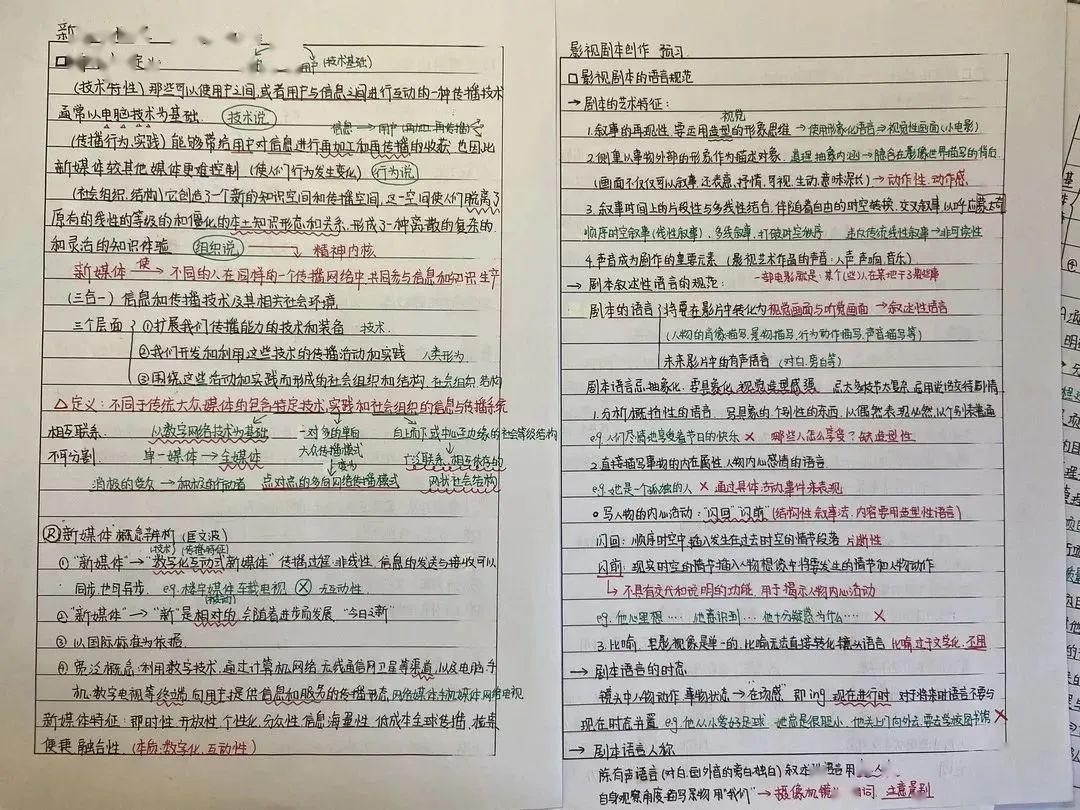 新
(技术基础)
(技术特性) 那些可以使用户之间,或者用户与信息之间进行互动的一种传播技术
通常以电脑技术为基础. 技术说
信息→用户(再加工再传播)
(传播行为,实践) 能够带给用户对信息进行再加工和再传播的收获 也因此
新媒体较其他媒体更难控制 (使人们行为发生变化) 行为说
(社会组织,结构) 它创造了一个新的知识空间和传播空间,这一空间使人们脱离了
原有的线性的等级的和僵化的本土知识形态和关系,形成了一种离散的复杂的
和灵活的知识体验 组织说 → 精神内核
新媒体 使→ 不同的人在同样的一个传播网络中共同参与信息和知识生产
(三合一) 信息和传播技术及其相关社会环境
三个层面 ①扩展我们传播能力的技术和装备 技术.
②我们开发和利用这些技术的传播活动和实践 人类行为.
③围绕这些活动和实践而形成的社会组织和结构. 社会组织 结构
△定义:不同于传统大众媒体的包含特定技术,实践和社会组织的信息与传播系统
相互联系. 以数字网络技术为基础 一对多的单向 自上而下或中心至边缘的社会等级结构
大众传播模式
不可分割. 单一媒体→全媒体 变为 广泛联系,相互依存的
消极的受众→积极的行动者 点对点的多向网络传播模式 网状社会结构
"新媒体"概念辨构 (匡文波)
(技术) (传播特征)
①"新媒体"→"数字化互动式新媒体" 传播过程:非线性,信息的发送与接收可以
同步,也可异步. eg.楼宇媒体 车载电视 × 无互动性
②"新媒体"→"新"是相对的 会随着进步而发展 "今日之新"
③以国际标准为依据.
④宽泛概念:利用数字技术,通过计算机网络,无线通信网,卫星等渠道,以及电脑,手
机,数字电视等终端,向用户提供信息和服务的传播形态,网络媒体,手机媒体,网络电视
新媒体特征:即时性,开放性,个性化,分众性,信息海量性,低成本全球传播,检索
便捷,融合性 (本质:数字化,互动性)
影视剧本创作 预习
□影视剧本的语言规范
→剧本的艺术特征:
视觉
1.叙事的再现性,要运用造型的形象思维→使用形象化语言→视觉性画面(小电影)
2.侧重从事物外部的形象作为描述对象. 道理 抽象内涵→隐含在影像世界描写的背后
(画面不仅仅可以叙事,还表意,抒情,可视,生动,意味深长)→动作性,动作感.
3.叙事时间上的片段性与多线性结合,伴随着自由的时空转换,交叉叙事
顺序时空叙事(线性叙事),多线叙事,打破时空秩序 传统线性叙事→非可读性
4.声音成为剧作的重要元素 (影视艺术作品的声音:人声,声响,音乐)
→剧本叙述性语言的规范: 一部电影就是:某个(些)人在某地干了某些事
剧本的语言 将要在影片中转化为视觉画面与听觉画面→叙述性语言
(人物的肖像描写,景物描写,行为动作描写,声音描写等)
未来影片中的有声语言 (对白,旁白等)
剧本语言忌:抽象化,要具象化,视觉造型感强
1.分析,概括性的语言. 写具象的,个别性的东西,以偶然表现必然,以个别来普遍
eg.人们尽情地享受着节日的快乐 × 哪些人怎么享受?缺造型性
2.直接描写事物的内在属性,人物内心感情的语言
eg.她是一个孤独的人 × 通过具体活动事件来表现
○写人物的内心活动:"闪回""闪前"(结构性叙事法,内容要用造型性语言)
闪回:顺序时空中插入发生在过去时空的情节段落 片断性
闪前:现实时空的情节插入人物想像中将要发生的情节和人物动作
↳不具有交代和说明的功能,用于揭示人物内心活动
eg.他心里想…… 他意识到…… 他十分疑惑为什么…… ×
3.比喻. 电影视象是单一的,比喻无法直接转化镜头语言 比喻过于文学化,不用
→剧本语言的时态
镜头中人物动作,事物状态→"在场感",即ing 现在进行时 对于将来时语言不要与
现在时态并置 eg.他从小爱好足球 她总是很胆小 他关上门向外走,要去学校图书馆 ×
→剧本语言人称
除有声语言(对白,画外音的旁白独白) 叙述
自身观察角度 描写景物用"我们"→摄像机镜 注意景别